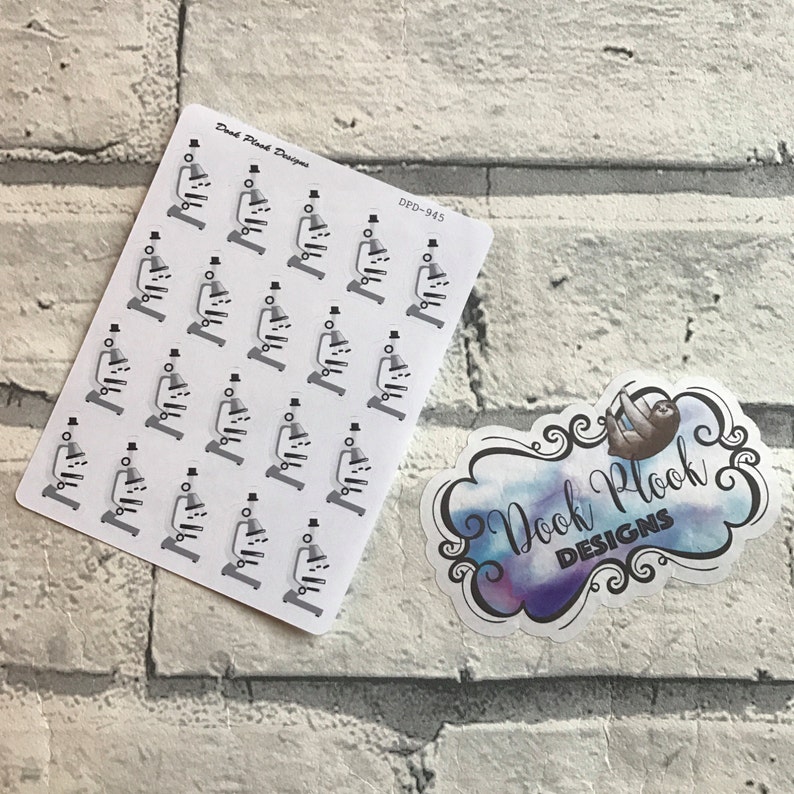 Dook Plook Designs
DPD-945
Dook Plook
DESIGNS